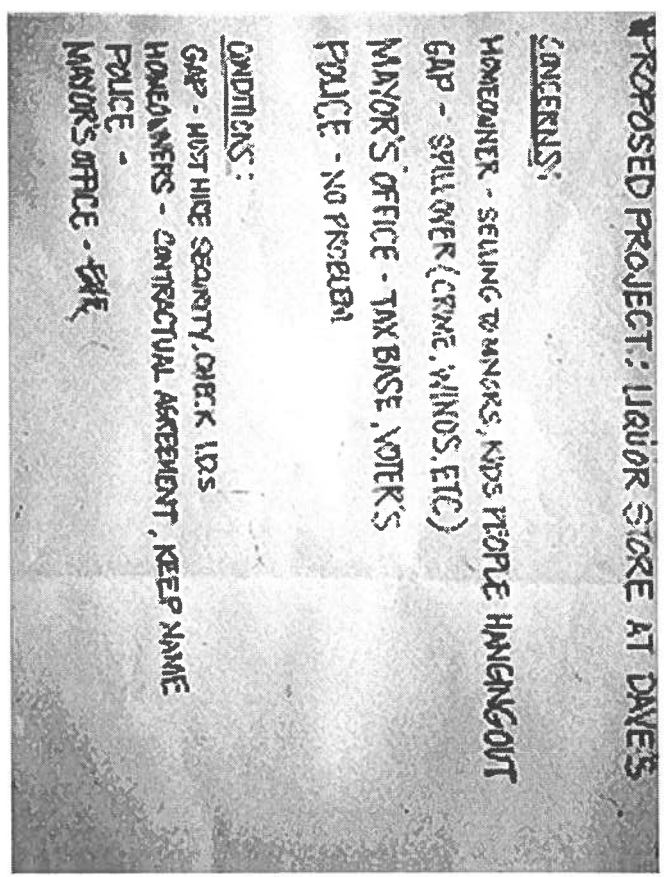 PROPOSED PROJECT: LIQUOR STORE AT DAVE'S
CONCERNS:
HOMEOWNER - SELLING TO MINORS, KIDS PEOPLE HANGINGOUT
GAP - SPILLOVER (CRIME, WINOS, ETC)
MAYOR'S OFFICE - TAX BASE, VOTER'S
POLICE - NO PROBLEM
CONDITIONS:
GAP - MUST HIRE SECURITY, CHECK I.D.S
HOMEOWNERS - CONTRACTUAL AGREEMENT, KEEP NAME
POLICE -
MAYOR'S OFFICE -